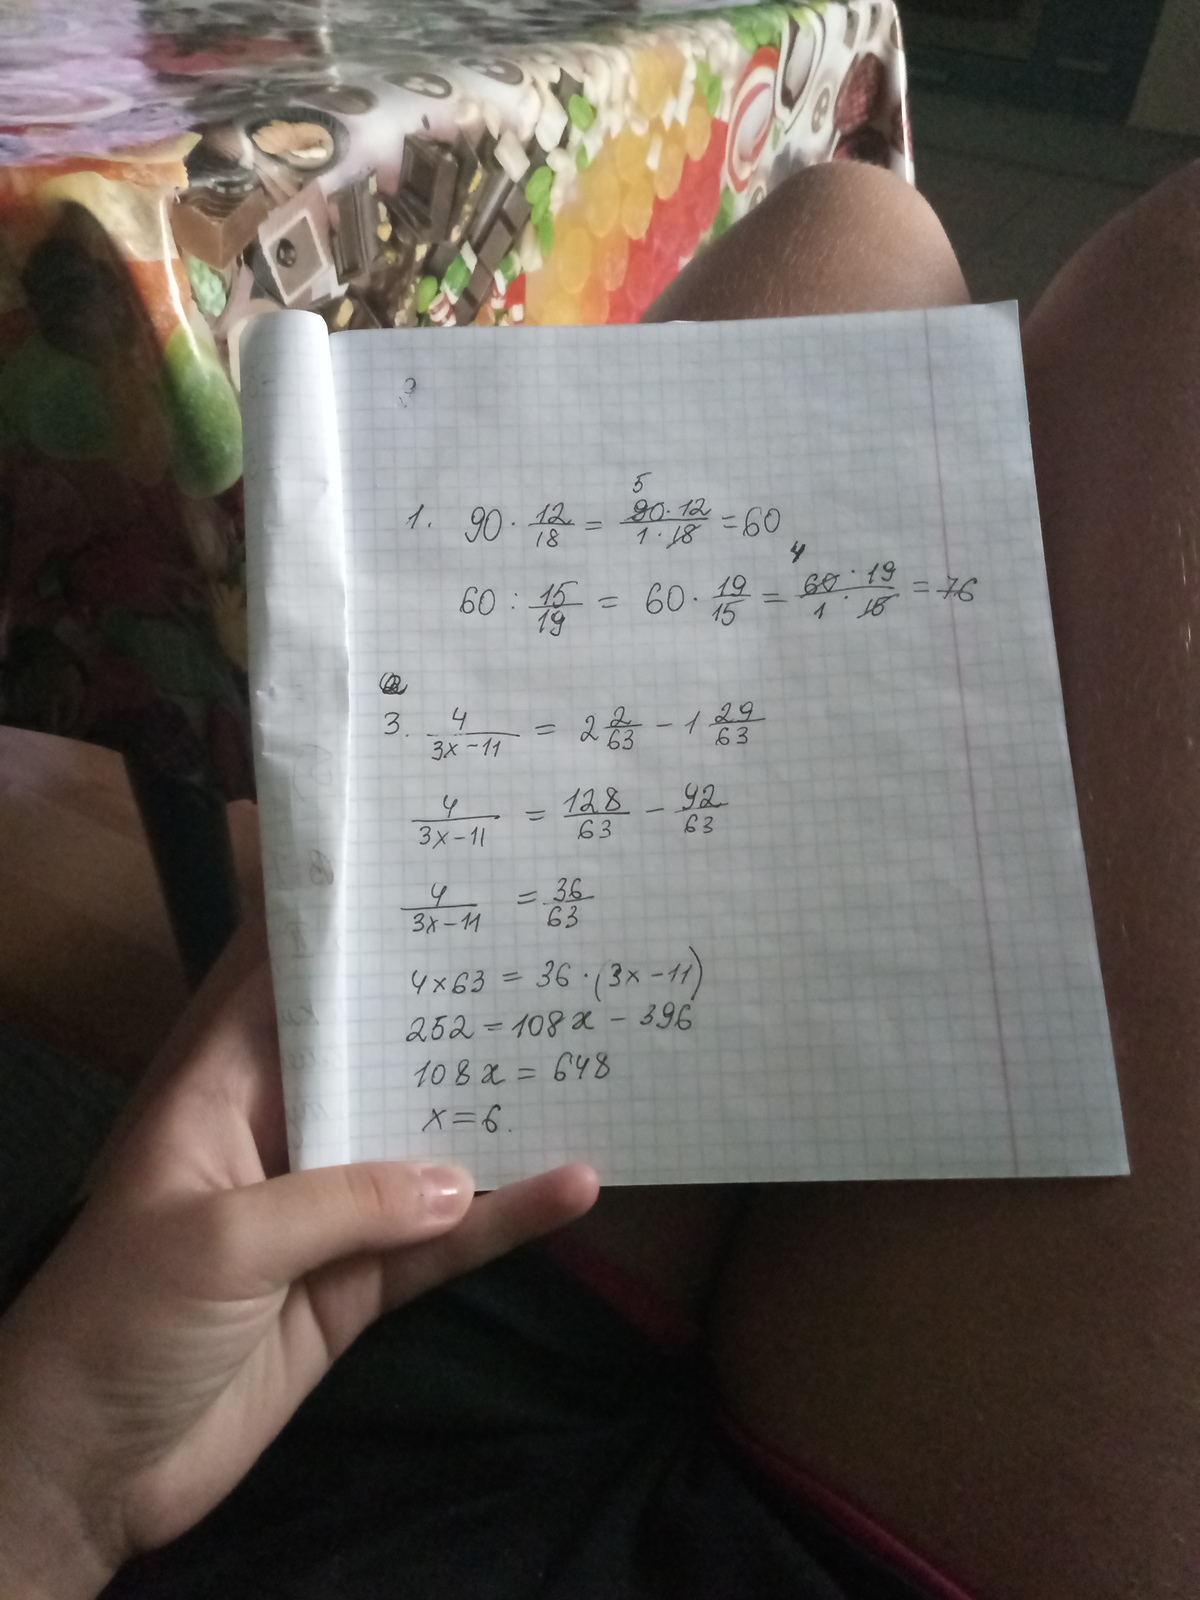 1. 90 · 12/18 = 5 90·12/1·18 = 60
60 : 15/19 = 60 · 19/15 = 4 60·19/1·15 = 76
3. 4/3x-11 = 2 2/63 - 1 29/63
4/3x-11 = 128/63 - 92/63
4/3x-11 = 36/63
4x63 = 36·(3x-11)
252 = 108x - 396
108x = 648
x = 6.